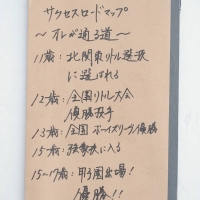 サクセスロードマップ
～オレが通る道～
11歳:北関東リトル選抜
に選ばれる
12歳:全国リトル大会
優勝投手
13歳:全国ボーイズリーグ優勝
15歳:強豪校に入る
15~17歳:甲子園出場!
優勝!!